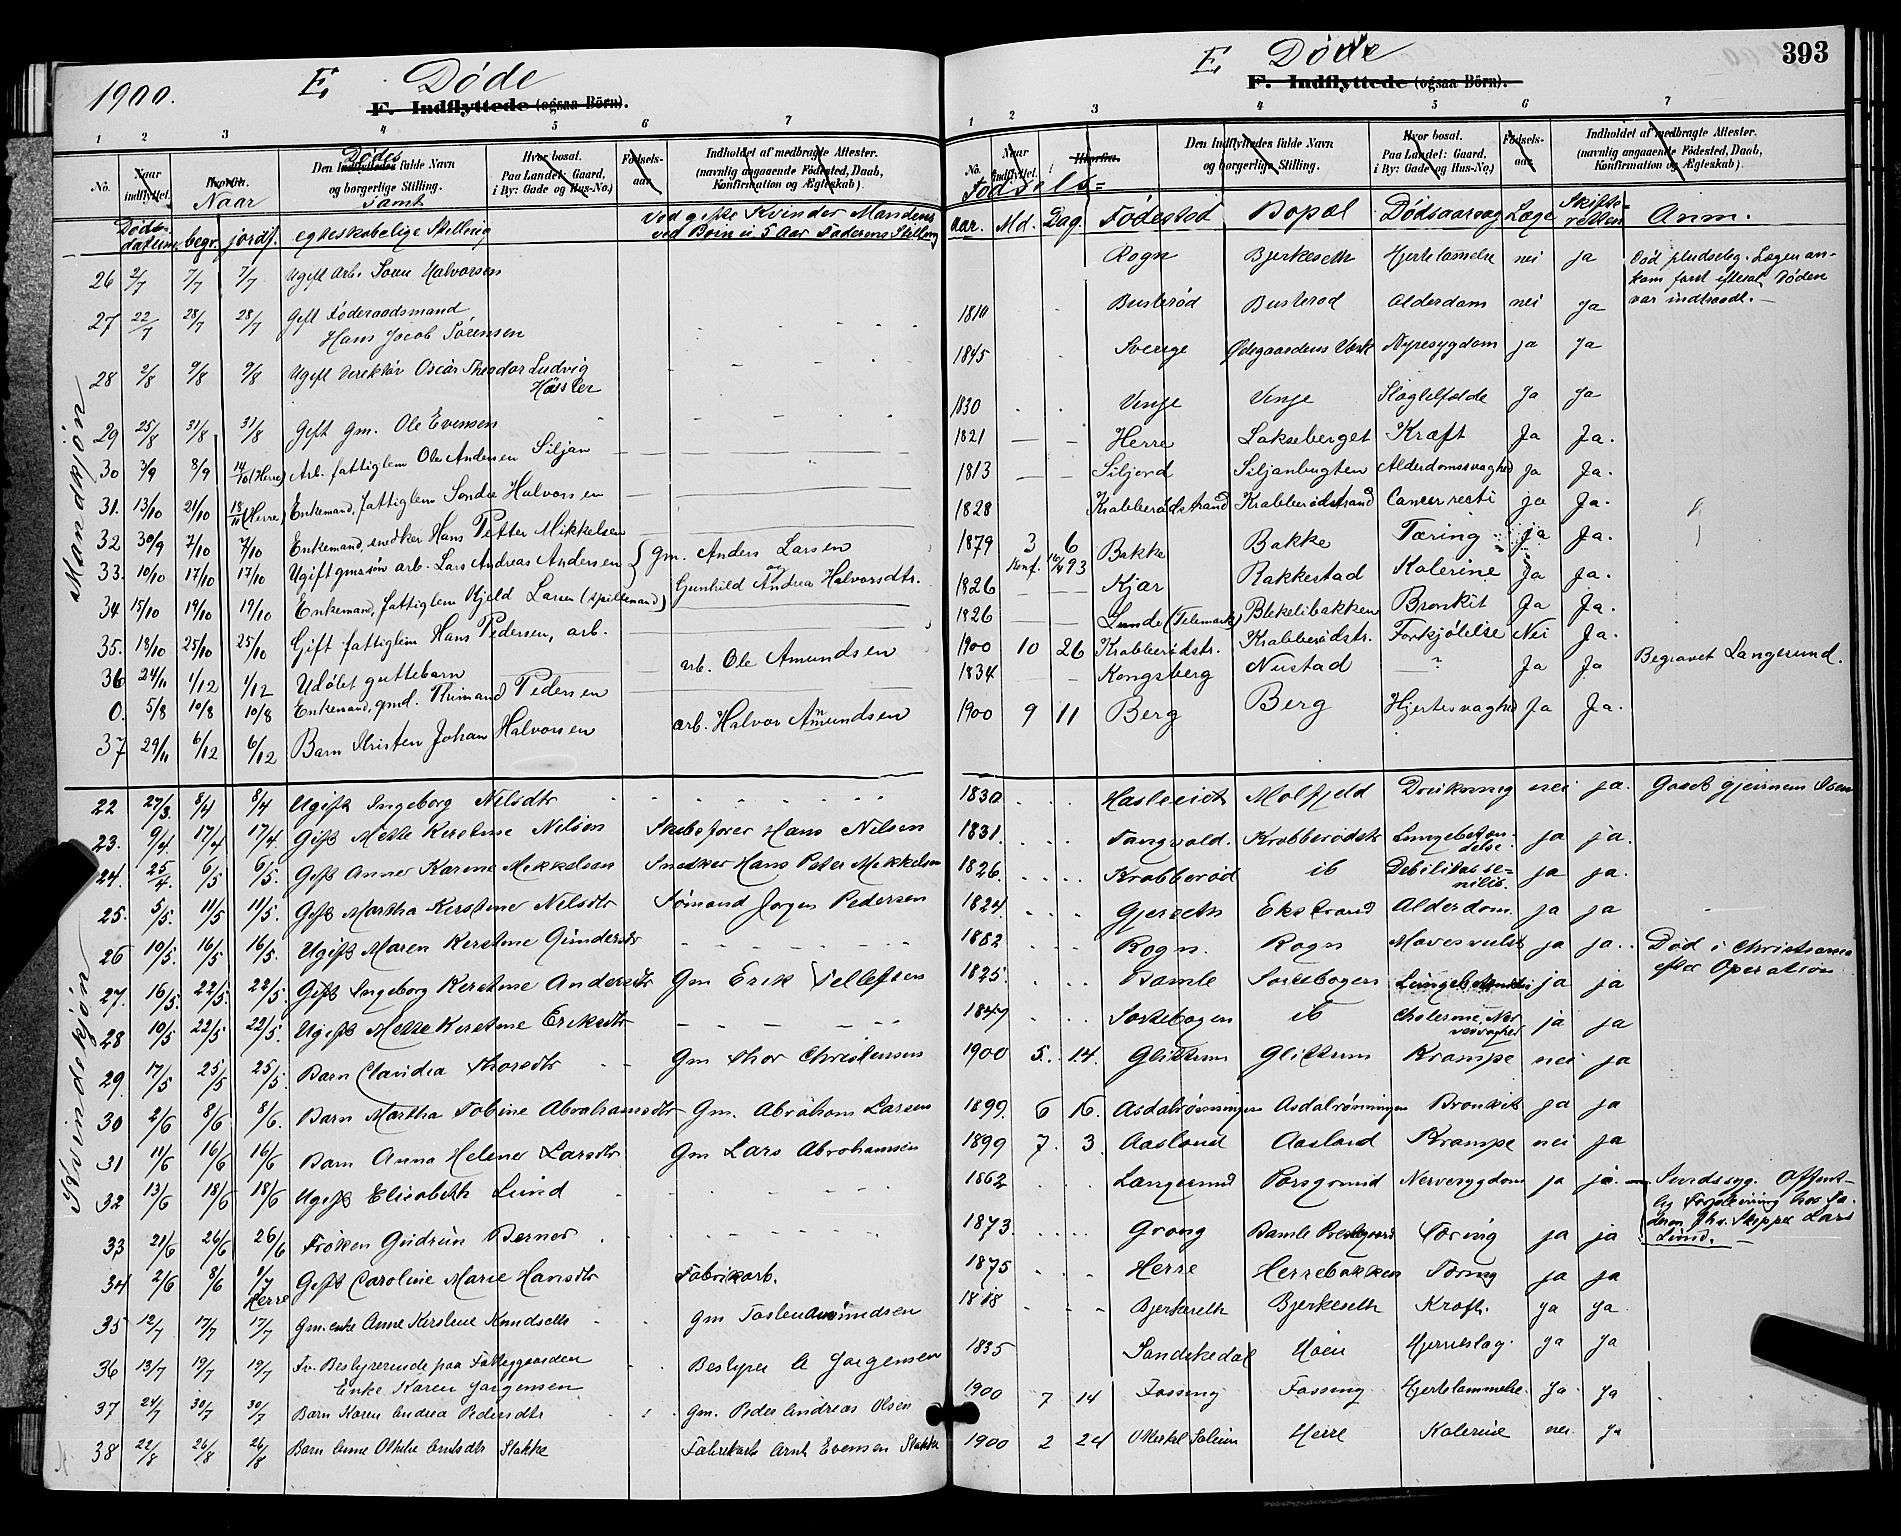 393
1900.
E. Døde
F. Indflyttede (ogsaa Børn).
1 2 3 4 5 6 7
No.
Naar indflyttet.
Hvorfra.
Naar
Den Indflyttedes fulde Navn og borgerlige Stilling.
Dødes
samt
Hvor bosat. Paa Landet: Gaard, i By: Gade og Hus-No.)
Fødsels-aar.
Indholdet af medbragte Attester. (navnlig angaaende Fødested, Daab, Konfirmation og Ægteskab).
Døds-datum. begr. jordf. egteskabelige Stilling
Ved gifte Kvinder Mandens
ved Børn u 5 Aar Faderens Stilling
Mandkjøn
26 2/7 7/7 7/7 Ugift Arb. Søren Halvorsen
27 22/7 28/7 28/7 Gift Føderaadsmand
Hans Jacob Sørensen
28 2/8 9/8 9/8 Ugift Direktør Oscar Theodor Ludvig
Hässler
29 25/8 31/8 31/8 Gift gm. Ole Evensen
30 3/9 8/9 (Herre) Arb. fattiglem Ole Andersen Siljan
31. 13/10 21/10 (Herre) Enkemand, fattiglem Sondre Halvorsen
32 30/9 7/10 7/10 Enkemand, snedker Hans Petter Mikkelsen
33. 10/10 17/10 17/10 Ugift gmasøn arb. Lars Andreas Andersen { gm. Anders Larsen
og
Gunhild Andrea Halvorsdtr.
34 15/10 19/10 19/10 Enkemand, fattiglem Kjeld Larsen (spillemand)
35. 18/10 25/10 25/10 Gift fattiglem Hans Pedersen, arb.
36 24/11 1/12 1/12 Udøbt guttebarn arb. Ole Amundsen
0. 5/8 10/8 10/8 Enkemand, gmd. Pedersen
37 29/11 6/12 6/12 Barn Kristen Johan Halvorsen arb. Halvor Amundsen
Kvindekjøn
22 27/3. 8/4 8/4 Ugift Ingeborg Nilsdtr
23. 9/4. 17/4 17/4. Gift Mette Kirstine Nilsen Skibsfører Hans Nilsen
24. 25/4. 6/5 6/5. Gift Anne Karine Mikkelsen Snedker Hans Peter Mikkelsen
25. 5/5. 11/5 11/5. Gift Martha Kirstine Nilsdtr Sømand Jørgen Pedersen
26 10/5. 16/5 16/5. Ugift Maren Kirstine Gundersdtr
27. 16/5. 22/5. 22/5. Gift Ingeborg Kirstine Andersdtr Gm Erik Tellefsen
28 10/5 22/5 22/5. Ugift Mette Kirstine Eriksdtr
29. 17/5 25/5 25/5. Barn Claudia Thorsdtr Gm Thor Christensen
30 2/6 8/6 8/6. Barn Martha Tobine Abrahamsdtr Gm. Abraham Larsen
31 11/6 16/6 16/6 Barn Anna Helene Larsdtr Gm Lars Abrahamsen
32 13/6 18/6 18/6 Ugift Elisabeth Lund
33 21/6 26/6 26/6 Frøken Gudrun Berner
34 2/6 8/6 1/7 Herre Gift Caroline Marie Hansdtr Fabrikarb.
35 12/7 17/7 17/7 Gm. enke Anne Kirstine Knudsdtr gm
36 13/7 19/7 19/7 Fv. Bestyrerinde paa Fattiggaarden Bestyrer A Jørgensen
Enke Karen Jørgensen
37 24/7 30/7 30/7 Barn Karen Andrea Pedersdtr Gm. Peder Andreas Olsen
38 22/8 26/8 26/8 Barn Anne Othilie Arntsdtr Stakke Fabrikarb Arnt Evensen Stakke
E. Døde
F. Indflyttede (ogsaa Börn).
1 2 3 4 5 6 7
No.
Naar indflyttet.
Hvorfra.
Den Indflyttedes fulde Navn og borgerlige Stilling.
Hvor bosat. Paa Landet: Gaard, i By: Gade og Hus-No.)
Fødsels-aar.
Indholdet af medbragte Attester. (navnlig angaaende Fødested, Daab, Konfirmation og Ægteskab).
Fødsels=
aar. Md. Dag. Fødested Bopæl Dødsaarsag Læge Skifte-retten Anm.
Rogn Bjerkeseth Hjertelammelse nei ja Død pludselig. Lægen an-
kom først efterat Døden
var indtraadt.
1810 Busterød Busterød Alderdom nei ja
1845 Sverige Ødegaardens Værk Nyresygdom ja ja
1830 Vinje Vinje Slagtilfælde ja ja
1821 Herre Lakseberget Kræft Ja Ja.
1813 Siljord Siljanbugten Alderdomssvaghed Ja Ja.
1828 Krabberødstrand Krabberødstrand Cancer recti ja Ja.
1879 3 6 Bakke Bakke Tæring ja Ja.
Konf. 93
1826 Kjær Rakkestad Kolerine Ja Ja.
1826 Lunde (Telemark) Blekelibakken Bronkit Ja Ja.
1900 10 26 Krabberødstr. Krabberødstr. Forkjølelse Nei Ja.
1834 Kongsberg Nustad ? Ja Ja Begravet Langesund.
1900 9 11 Berg Berg Hjertesvaghed Ja Ja.
1830 Molfjeld Drukning nei ja. Gaaet gjennem Isen
1831. Tangvald. Krabberødstr Lungebetæn-
delse ja ja.
1826. Krabberød ib Debilitas se-
nilis. ja ja.
1824. Gjerseth Ekstrand Alderdom. ja ja
1852 Rogn. Rogn Mavesvulst ja ja. Død i Christiania
efter Operation
1825. Bamle Lungebetændelse ja ja
1847 ib Cholerine, Ner-
vesvaghed ja ja
1900 5. 14. Glittum Glittum Krampe nei ja
1899. 6 16. Asdalrønningen Asdalrønningen Bronkit ja ja
1899 7. 3. Aasland Aasland Krampe nei ja
1862 Langesund Porsgrund Nervesygdom ja ja. Sindssyg. Offent-
lig Forpleining hos Fa-
deren Skipper Lars
Lund.
1873. Grong Bamle Prestegaard Tæring ja ja
1875 Herre Herrebakken Tæring ja ja
1818 Bjerkeseth Bjerkeseth Kræft. ja ja
1835 Sandøkedal Moen Hjerneslag. ja ja
1900 7 14 Fossing Fossing Hjertelammelse. ja ja
1900 2 24 Herre Kolerine nei ja